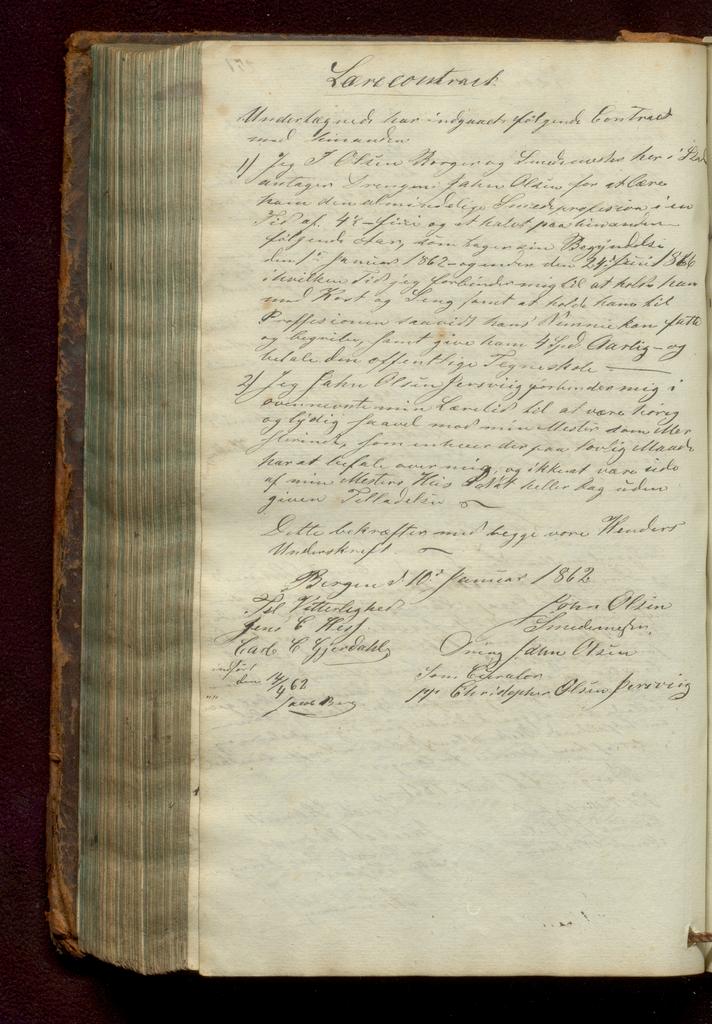 Lærecontract
Undertegnede har indgaaet følgende Contract
med hinanden
1) Jeg J Olsen Borger og Smedemester her i Stad
antager Drengen Jahn Olsen for at lære
ham den almindelige Smedeprofesion i en
Tid af 4½ - fire og et halvt paa hinanden
følgende Aar, som tager sin Begyndelse
den 1ste Januar 1862 - og ender den 24d Juni 1866
i hvilken Tid jeg forbinder mig til at holde ham
med Kost og Seng samt at holde ham til
Proffesionen saavidt hans Nemme kan fatte
og begribe, samt give ham 4 Spd. Aarlig - og
betale den offentlige Tegneskole
2) Jeg Jahn Olsen Persviig forbinder mig i
ovennevnte min Læretid til at være hørig
og lydig saavel mod min Mester som Mes
terinde, som enhver der paa lovlig Maade
har at befale over mig, og ikke at være ude
af min Mesters Huus Nat heller Dag uden
given Tilladelse
Dette bekræftes med begge vore Hænders
Underskrift
Bergen d 10de Januar 1862
Til Vitterlighed
John Olsen
Jens C
Smedemester
Carl C Gjerdahl
Dreng Jahn Olsen
indført
Som Curator
den 14/4 62
pp Christopher Olsen Persviig
Jacob